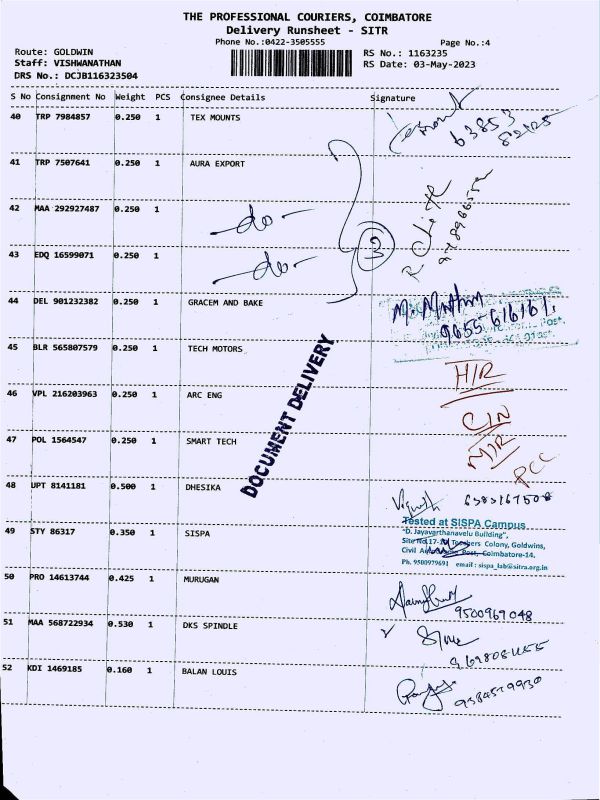 THE PROFESSIONAL COURIERS, COIMBATORE
Delivery Runsheet - SITR
Phone No.:0422-3505555 Page No.:4
Route: GOLDWIN RS No.: 1163235
Staff: VISHWANATHAN RS Date: 03-May-2023
DRS No.: DCJB116323504
S No Consignment No Weight PCS Consignee Details Signature
40 TRP 7984857 0.250 1 TEX MOUNTS
63853
41 TRP 7507641 0.250 1 AURA EXPORT
42 MAA 292927487 0.250 1 -do-
43 EDQ 16599071 0.250 1 -do-
3
44 DEL 901232382 0.250 1 GRACEM AND BAKE
9655 616161.
45 BLR 565807579 0.250 1 TECH MOTORS
H/R
46 VPL 216203963 0.250 1 ARC ENG
C/N
47 POL 1564547 0.250 1 SMART TECH
M/R
PCC
DOCUMENT DELIVERY
48 UPT 8141181 0.500 1 DHESIKA
49 STY 86317 0.350 1 SISPA
Tested at SISPA Campus
"D. Jayavarthanavelu Building",
Colony, Goldwins,
Civil Post, Coimbatore-14.
Ph. 9500979691 email : sispa_lab@sitra.org.in
50 PRO 14613744 0.425 1 MURUGAN
9500969048
51 MAA 568722934 0.530 1 DKS SPINDLE
52 KDI 1469185 0.160 1 BALAN LOUIS